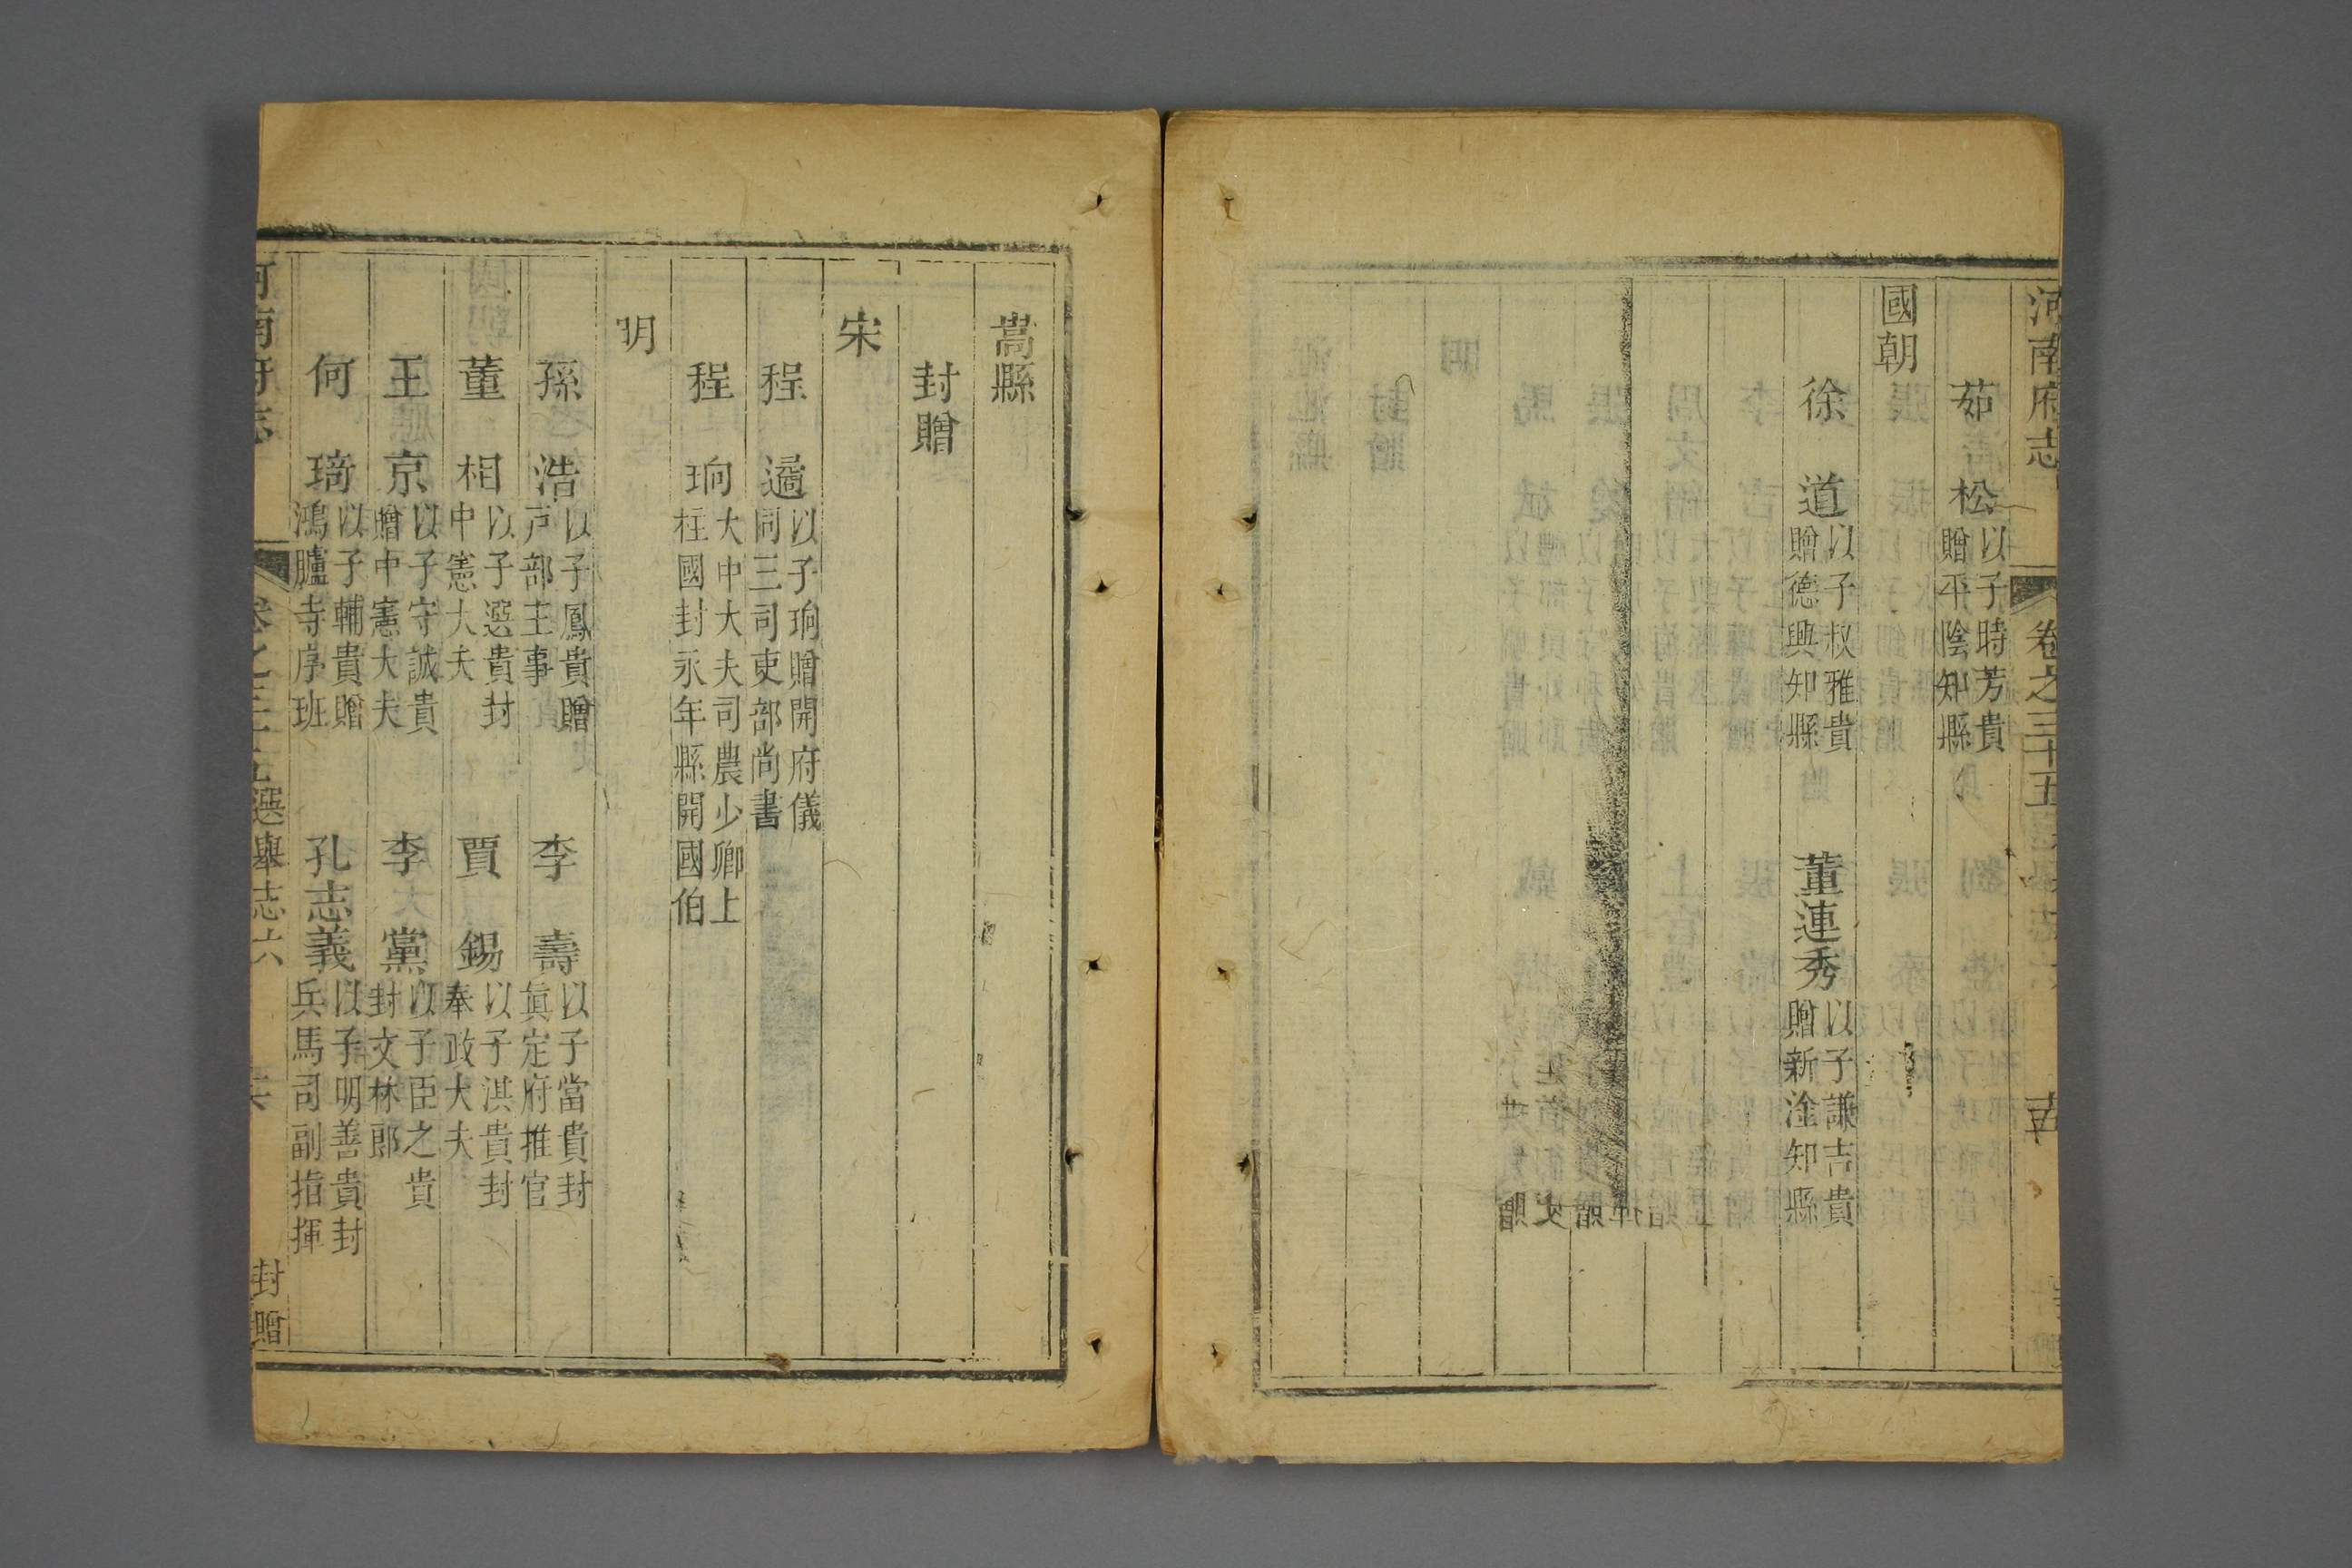 河南府志 卷之三十五
茹 松 以子時芳貴贈平陰知縣
國朝
徐 道 以子叔雅貴贈德興知縣
董連秀 以子謙吉貴贈新淦知縣
嵩縣
封贈
宋
程 遹 以子珦贈開府儀同三司吏部尚書
程 珦 大中大夫司農少卿上柱國封永年縣開國伯
明
孫 浩 以子鳳貴贈戸部主事
李 壽 以子當貴封眞定府推官
董 相 以子𢙢貴封中憲大夫
賈 錫 以子淇貴封奉政大夫
王 京 以子守誠貴贈中憲大夫
李 黨 以子臣之貴封文林郎
何 琦 以子輔貴贈鴻臚寺序班
孔志義 以子明善貴封兵馬司副指揮
河南府志 卷之三十五 選舉志六 封贈